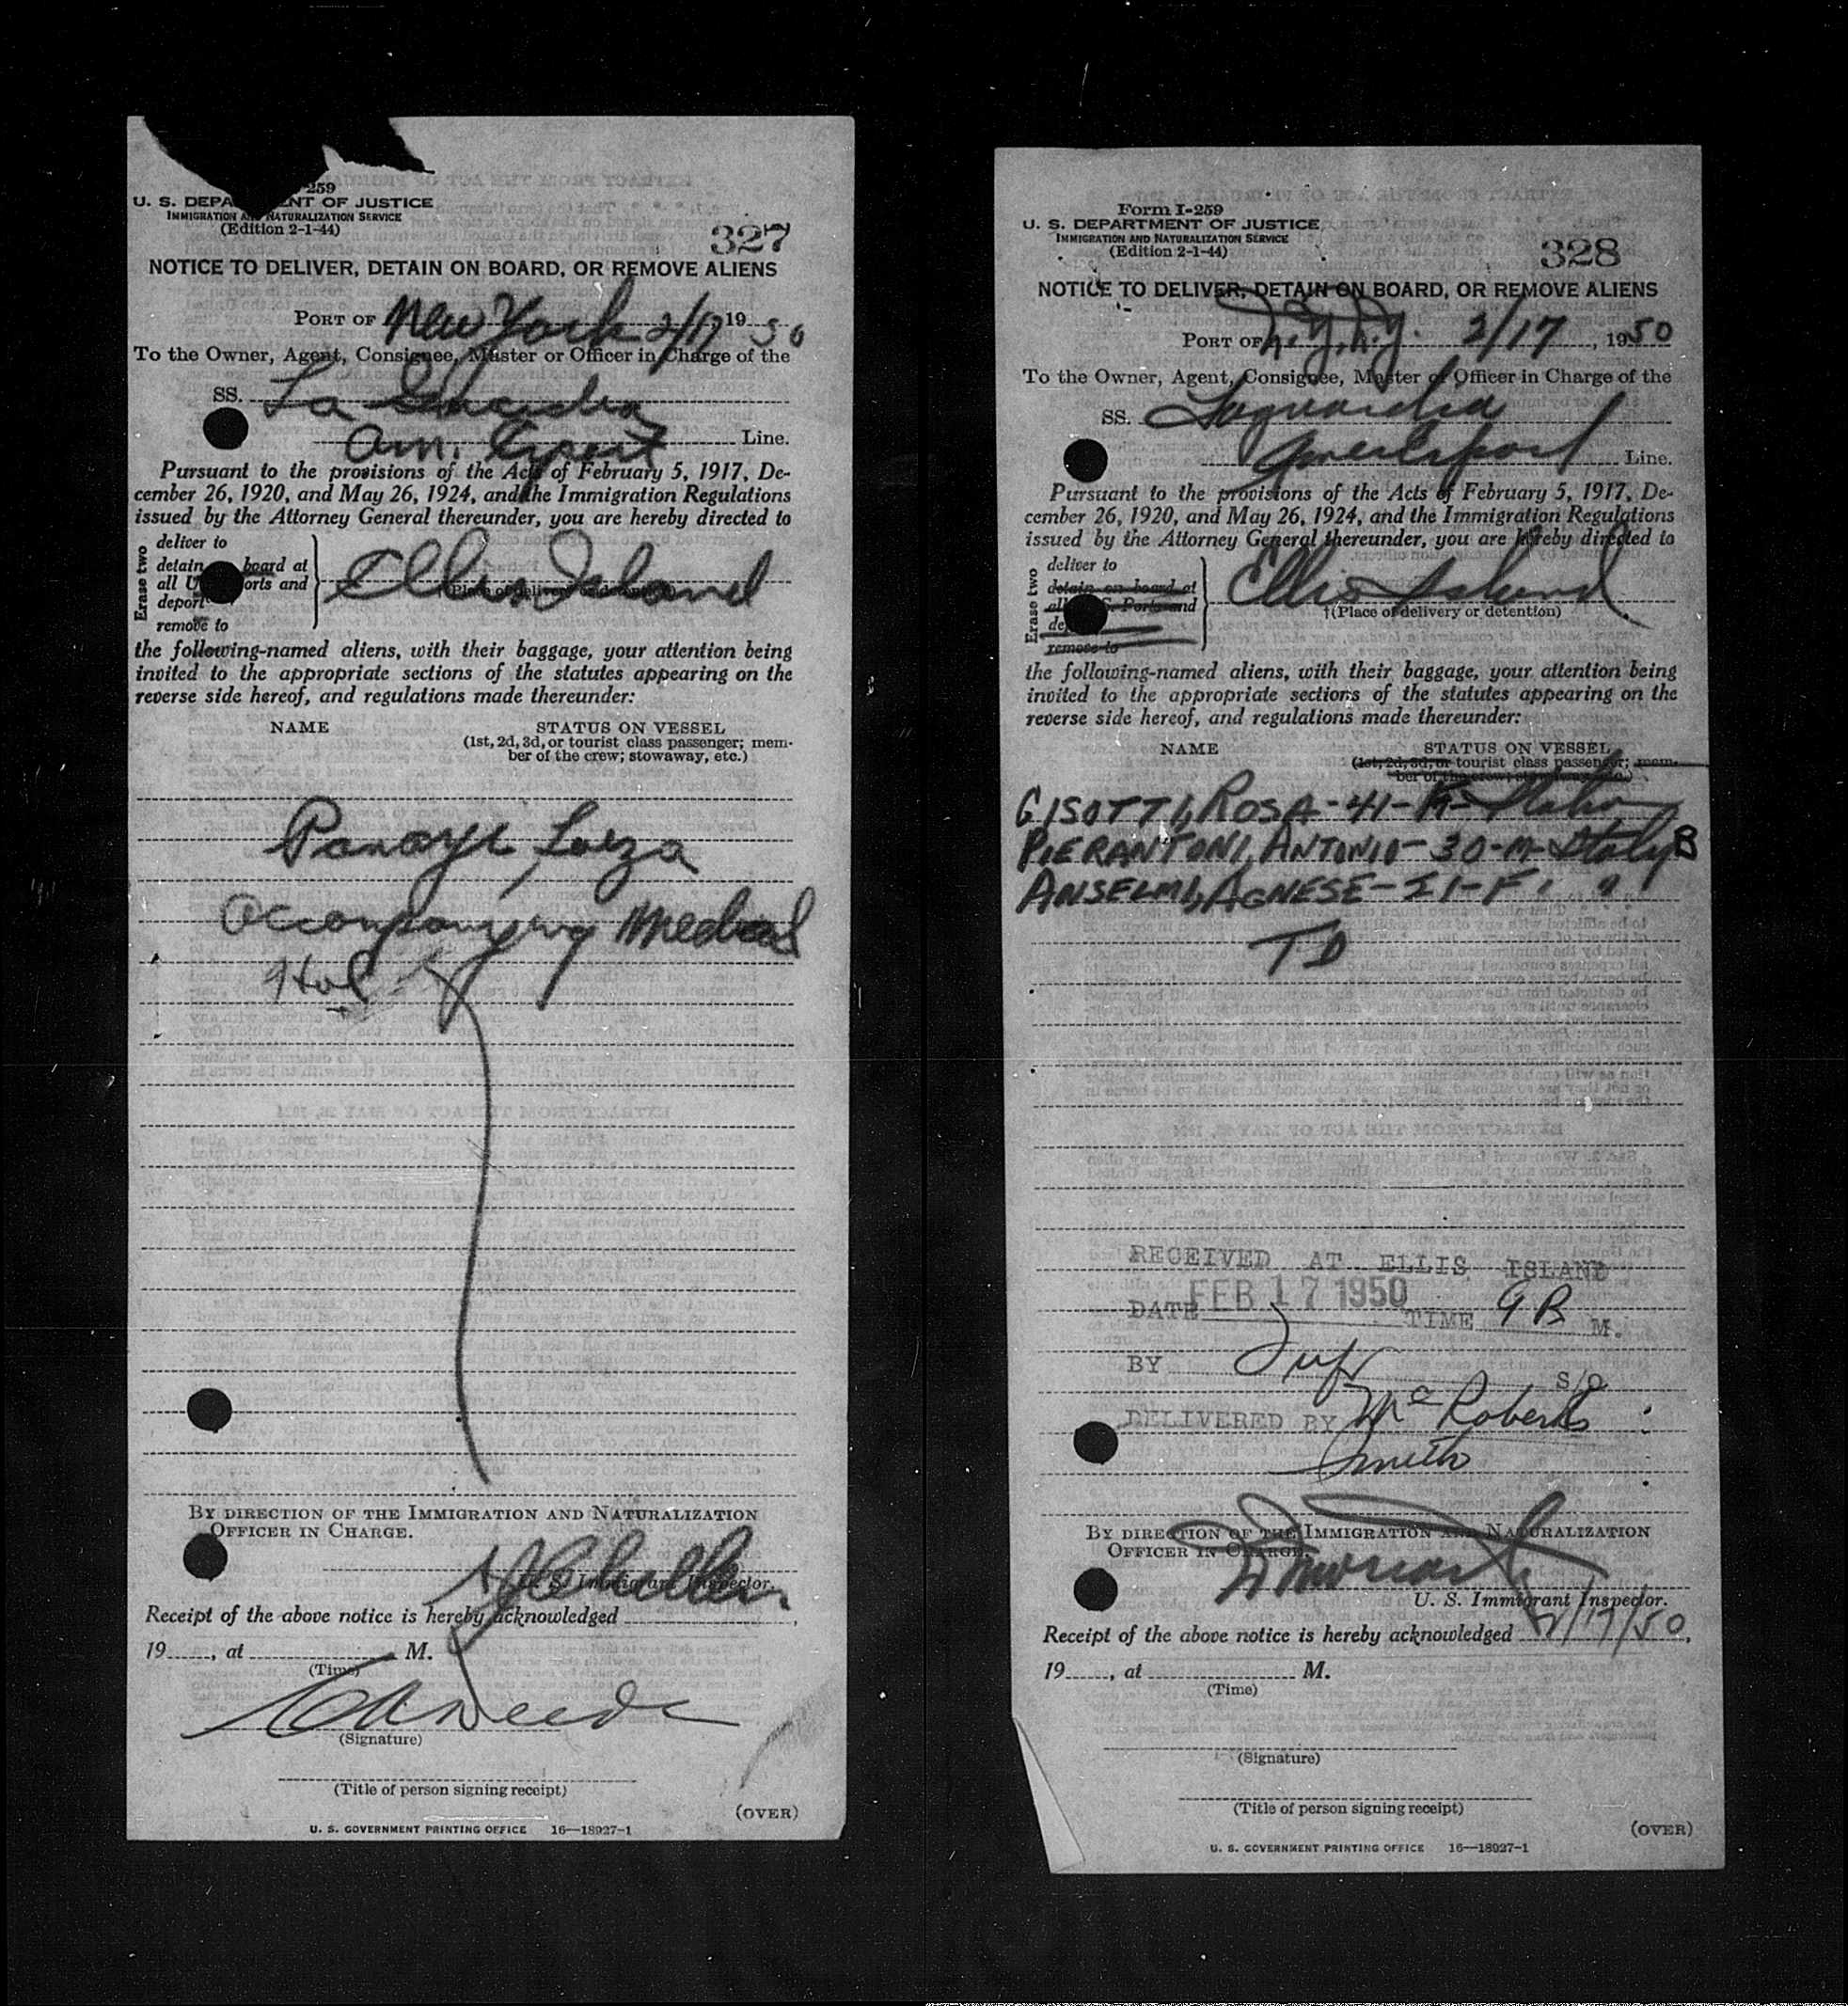 259
U. S. DEPA ENT OF JUSTICE
IMMIGRATION AND NATURALIZATION SERVICE
(Edition 2-1-44)
327
NOTICE TO DELIVER, DETAIN ON BOARD, OR REMOVE ALIENS
PORT OF New York 2/17 19 50
To the Owner, Agent, Consignee, Master or Officer in Charge of the
SS. La Guardia
Am. Export Line.
Pursuant to the provisions of the Acts of February 5, 1917, De-
cember 26, 1920, and May 26, 1924, and the Immigration Regulations
issued by the Attorney General thereunder, you are hereby directed to
Erase two
deliver to
detain board at
all U orts and
deport
remove to
Ellis Island
the following-named aliens, with their baggage, your attention being
invited to the appropriate sections of the statutes appearing on the
reverse side hereof, and regulations made thereunder:
NAME STATUS ON VESSEL
(1st, 2d, 3d, or tourist class passenger; mem-
ber of the crew; stowaway, etc.)
Panayi, Luiza
Accompanying Medical
Hol
BY DIRECTION OF THE IMMIGRATION AND NATURALIZATION
OFFICER IN CHARGE.
U. S. Immigrant Inspector.
Receipt of the above notice is hereby acknowledged
19 , at M.
(Time)
(Signature)
(Title of person signing receipt)
(OVER)
U. S. GOVERNMENT PRINTING OFFICE 16—18927-1
Form I-259
U. S. DEPARTMENT OF JUSTICE
IMMIGRATION AND NATURALIZATION SERVICE
(Edition 2-1-44)
328
NOTICE TO DELIVER, DETAIN ON BOARD, OR REMOVE ALIENS
PORT OF N.Y.N.Y. 2/17, 1950
To the Owner, Agent, Consignee, Master or Officer in Charge of the
SS. Laguardia
Amerexport Line.
Pursuant to the provisions of the Acts of February 5, 1917, De-
cember 26, 1920, and May 26, 1924, and the Immigration Regulations
issued by the Attorney General thereunder, you are hereby directed to
Erase two
deliver to
detain on board at
all S. Ports and
de
remove to
Ellis Island
†(Place of delivery or detention)
the following-named aliens, with their baggage, your attention being
invited to the appropriate sections of the statutes appearing on the
reverse side hereof, and regulations made thereunder:
NAME STATUS ON VESSEL
(1st, 2d, 3d, or tourist class passenger; mem-
ber of the crew; stowaway, etc.)
GISOTTI, ROSA - 41 -
PIERANTONI, ANTONIO - 30 - M - Italy B
ANSELMI, AGNESE - 51 - F. "
TD
RECEIVED AT ELLIS ISLAND
DATE FEB 17 1950 TIME 9 P. M.
BY S/O
DELIVERED BY McRoberts
Smith
BY DIRECTION OF THE IMMIGRATION AND NATURALIZATION
OFFICER IN CHARGE.
U. S. Immigrant Inspector.
Receipt of the above notice is hereby acknowledged 2/17/50,
19 , at M.
(Time)
(Signature)
(Title of person signing receipt)
(OVER)
U. S. GOVERNMENT PRINTING OFFICE 16—18927-1